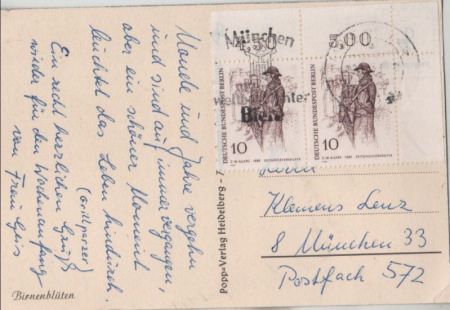 Monde und Jahre vergehn
und sind auf immer vergangen,
aber ein schöner Moment
leuchtet das Leben hindurch.
(Grillparzer)
Ein recht herzlichen Gruß
wieder für den Wochenanfang
von Frau Geis
Birnenblüten
Popp-Verlag Heidelberg-S 7
4,50
5,00
München
Bier
10
DEUTSCHE BUNDESPOST BERLIN
C.W. ALLERS · 1889 · ZEITUNGSVERKÄUFER
10
DEUTSCHE BUNDESPOST BERLIN
C.W. ALLERS · 1889 · ZEITUNGSVERKÄUFER
Klemens Lenz
8 München 33
Postfach 572